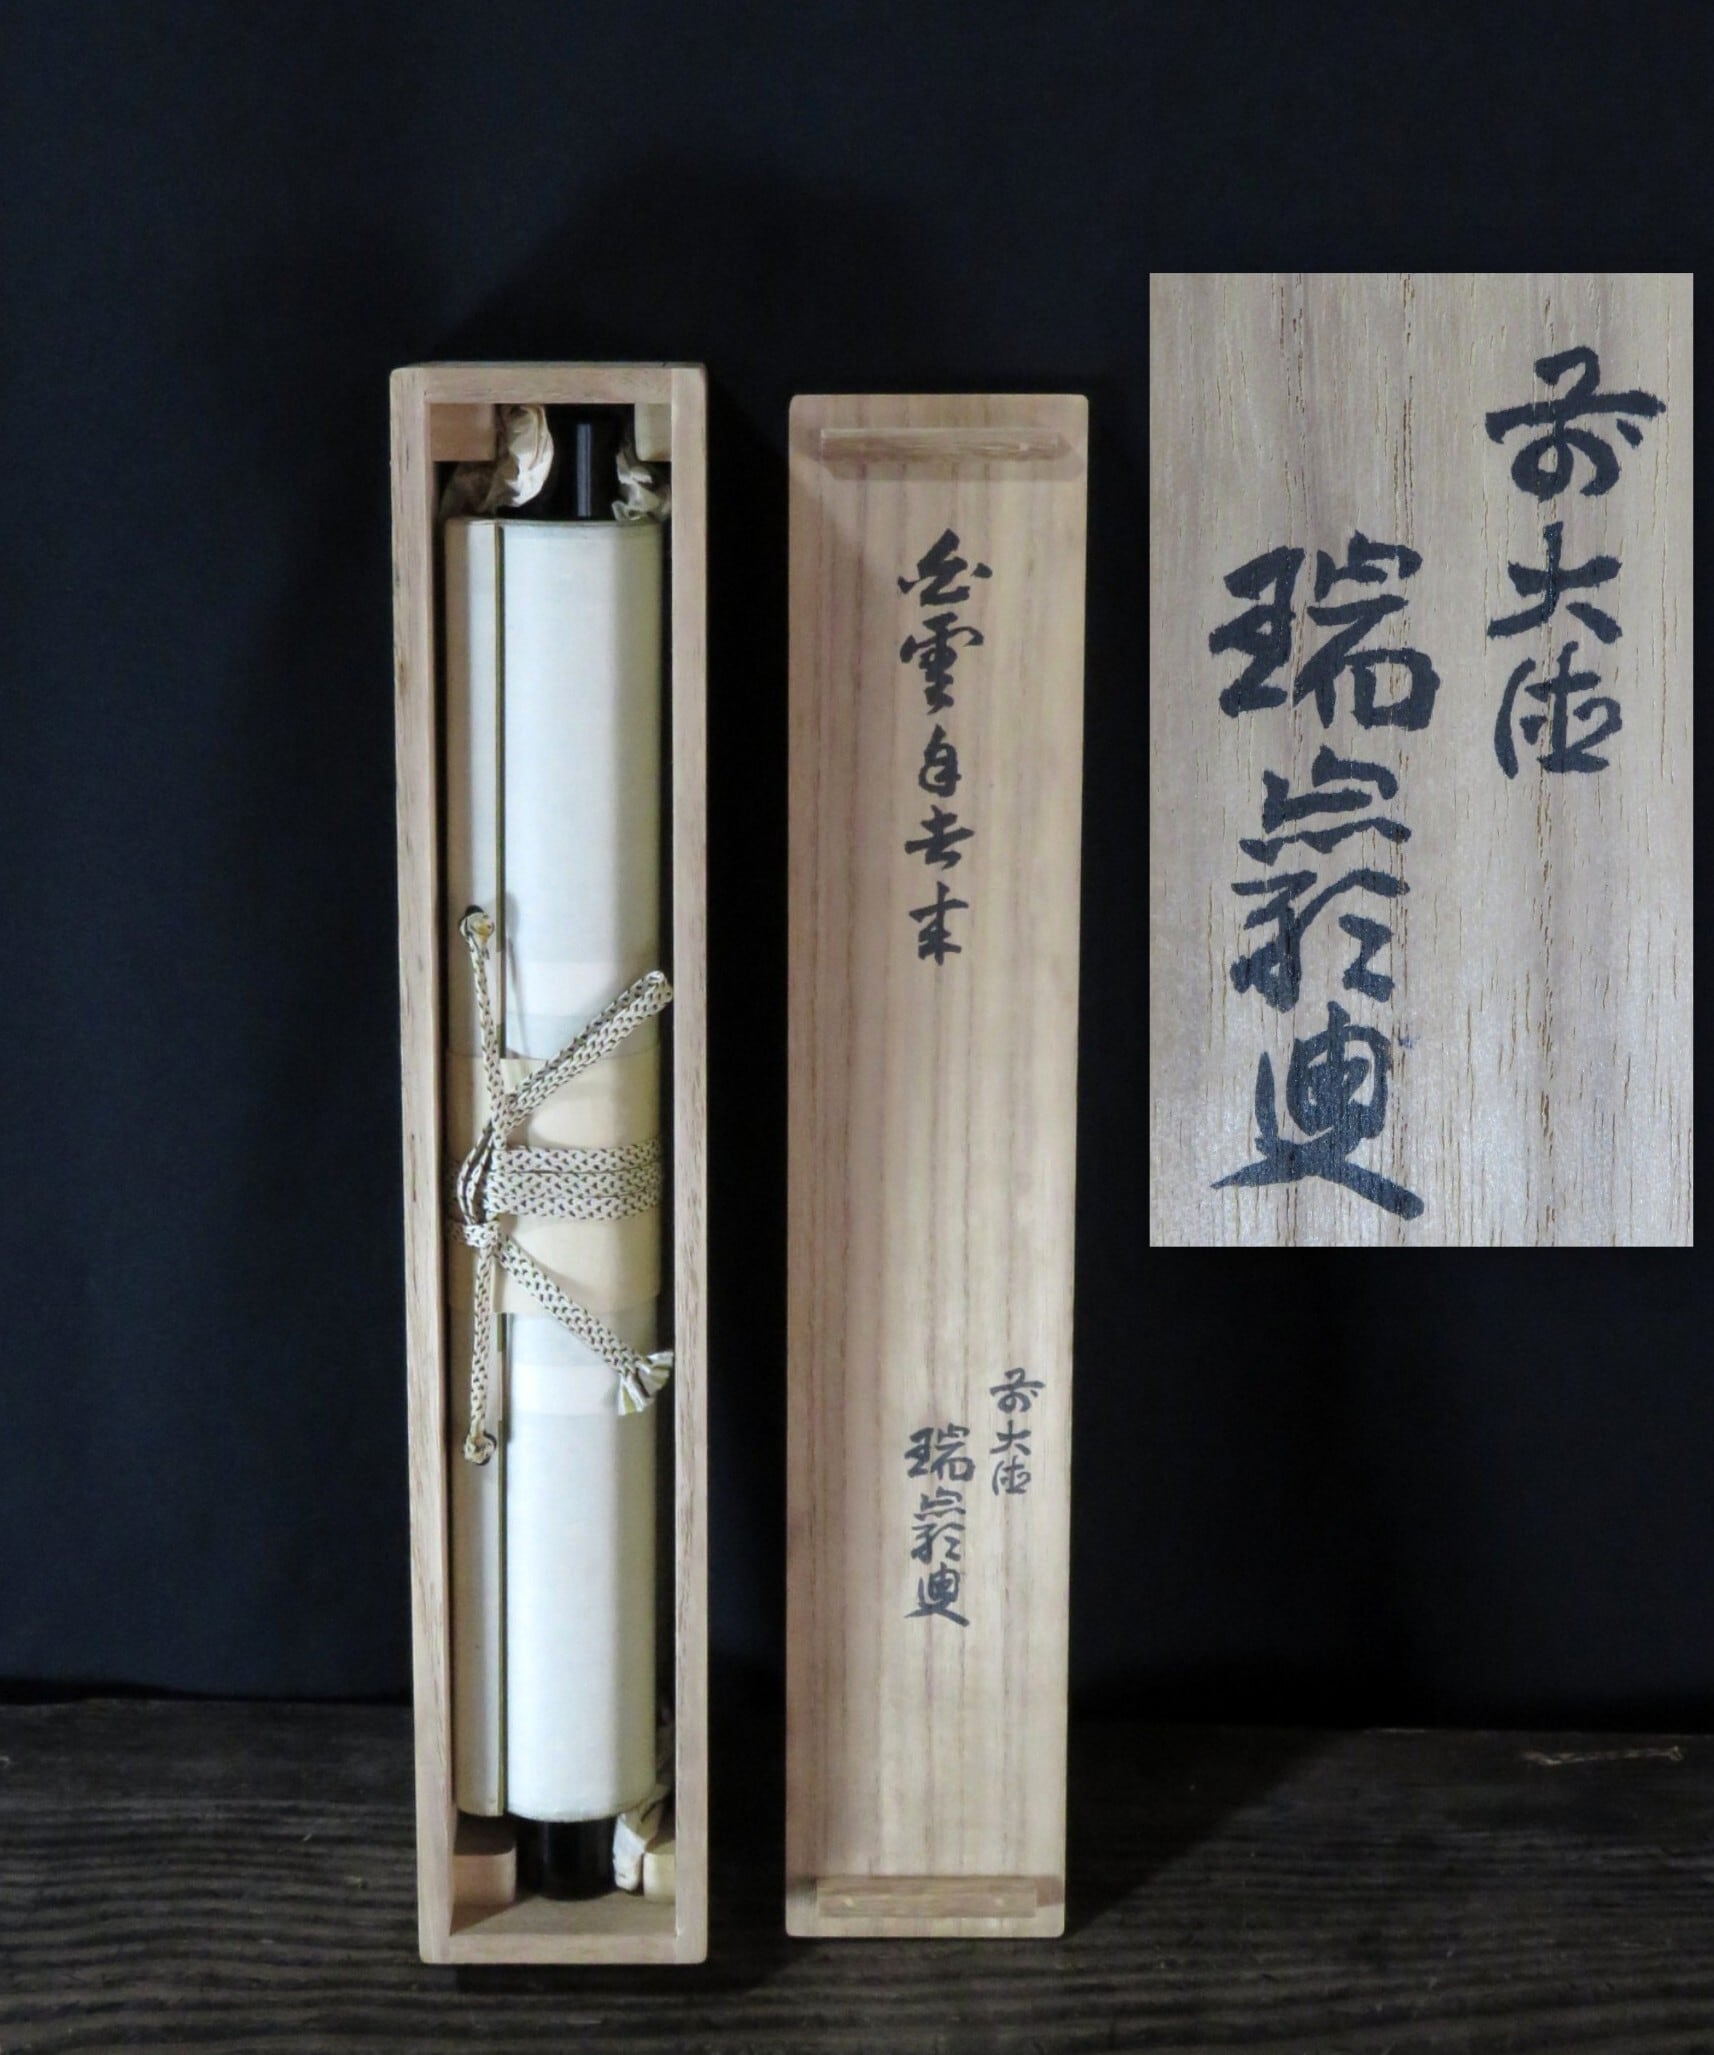 白雲自去来
前大徳
瑞巌
前大徳
瑞巌